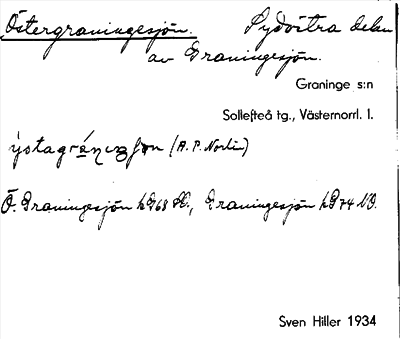 Östergraningesjön. Sydöstra delen
av Graningesjön.
Graninge s:n
Sollefteå tg., Västernorrl. l.
(A. P. Norlin)
Ö. Graningesjön
Graningesjön
Sven Hiller 1934